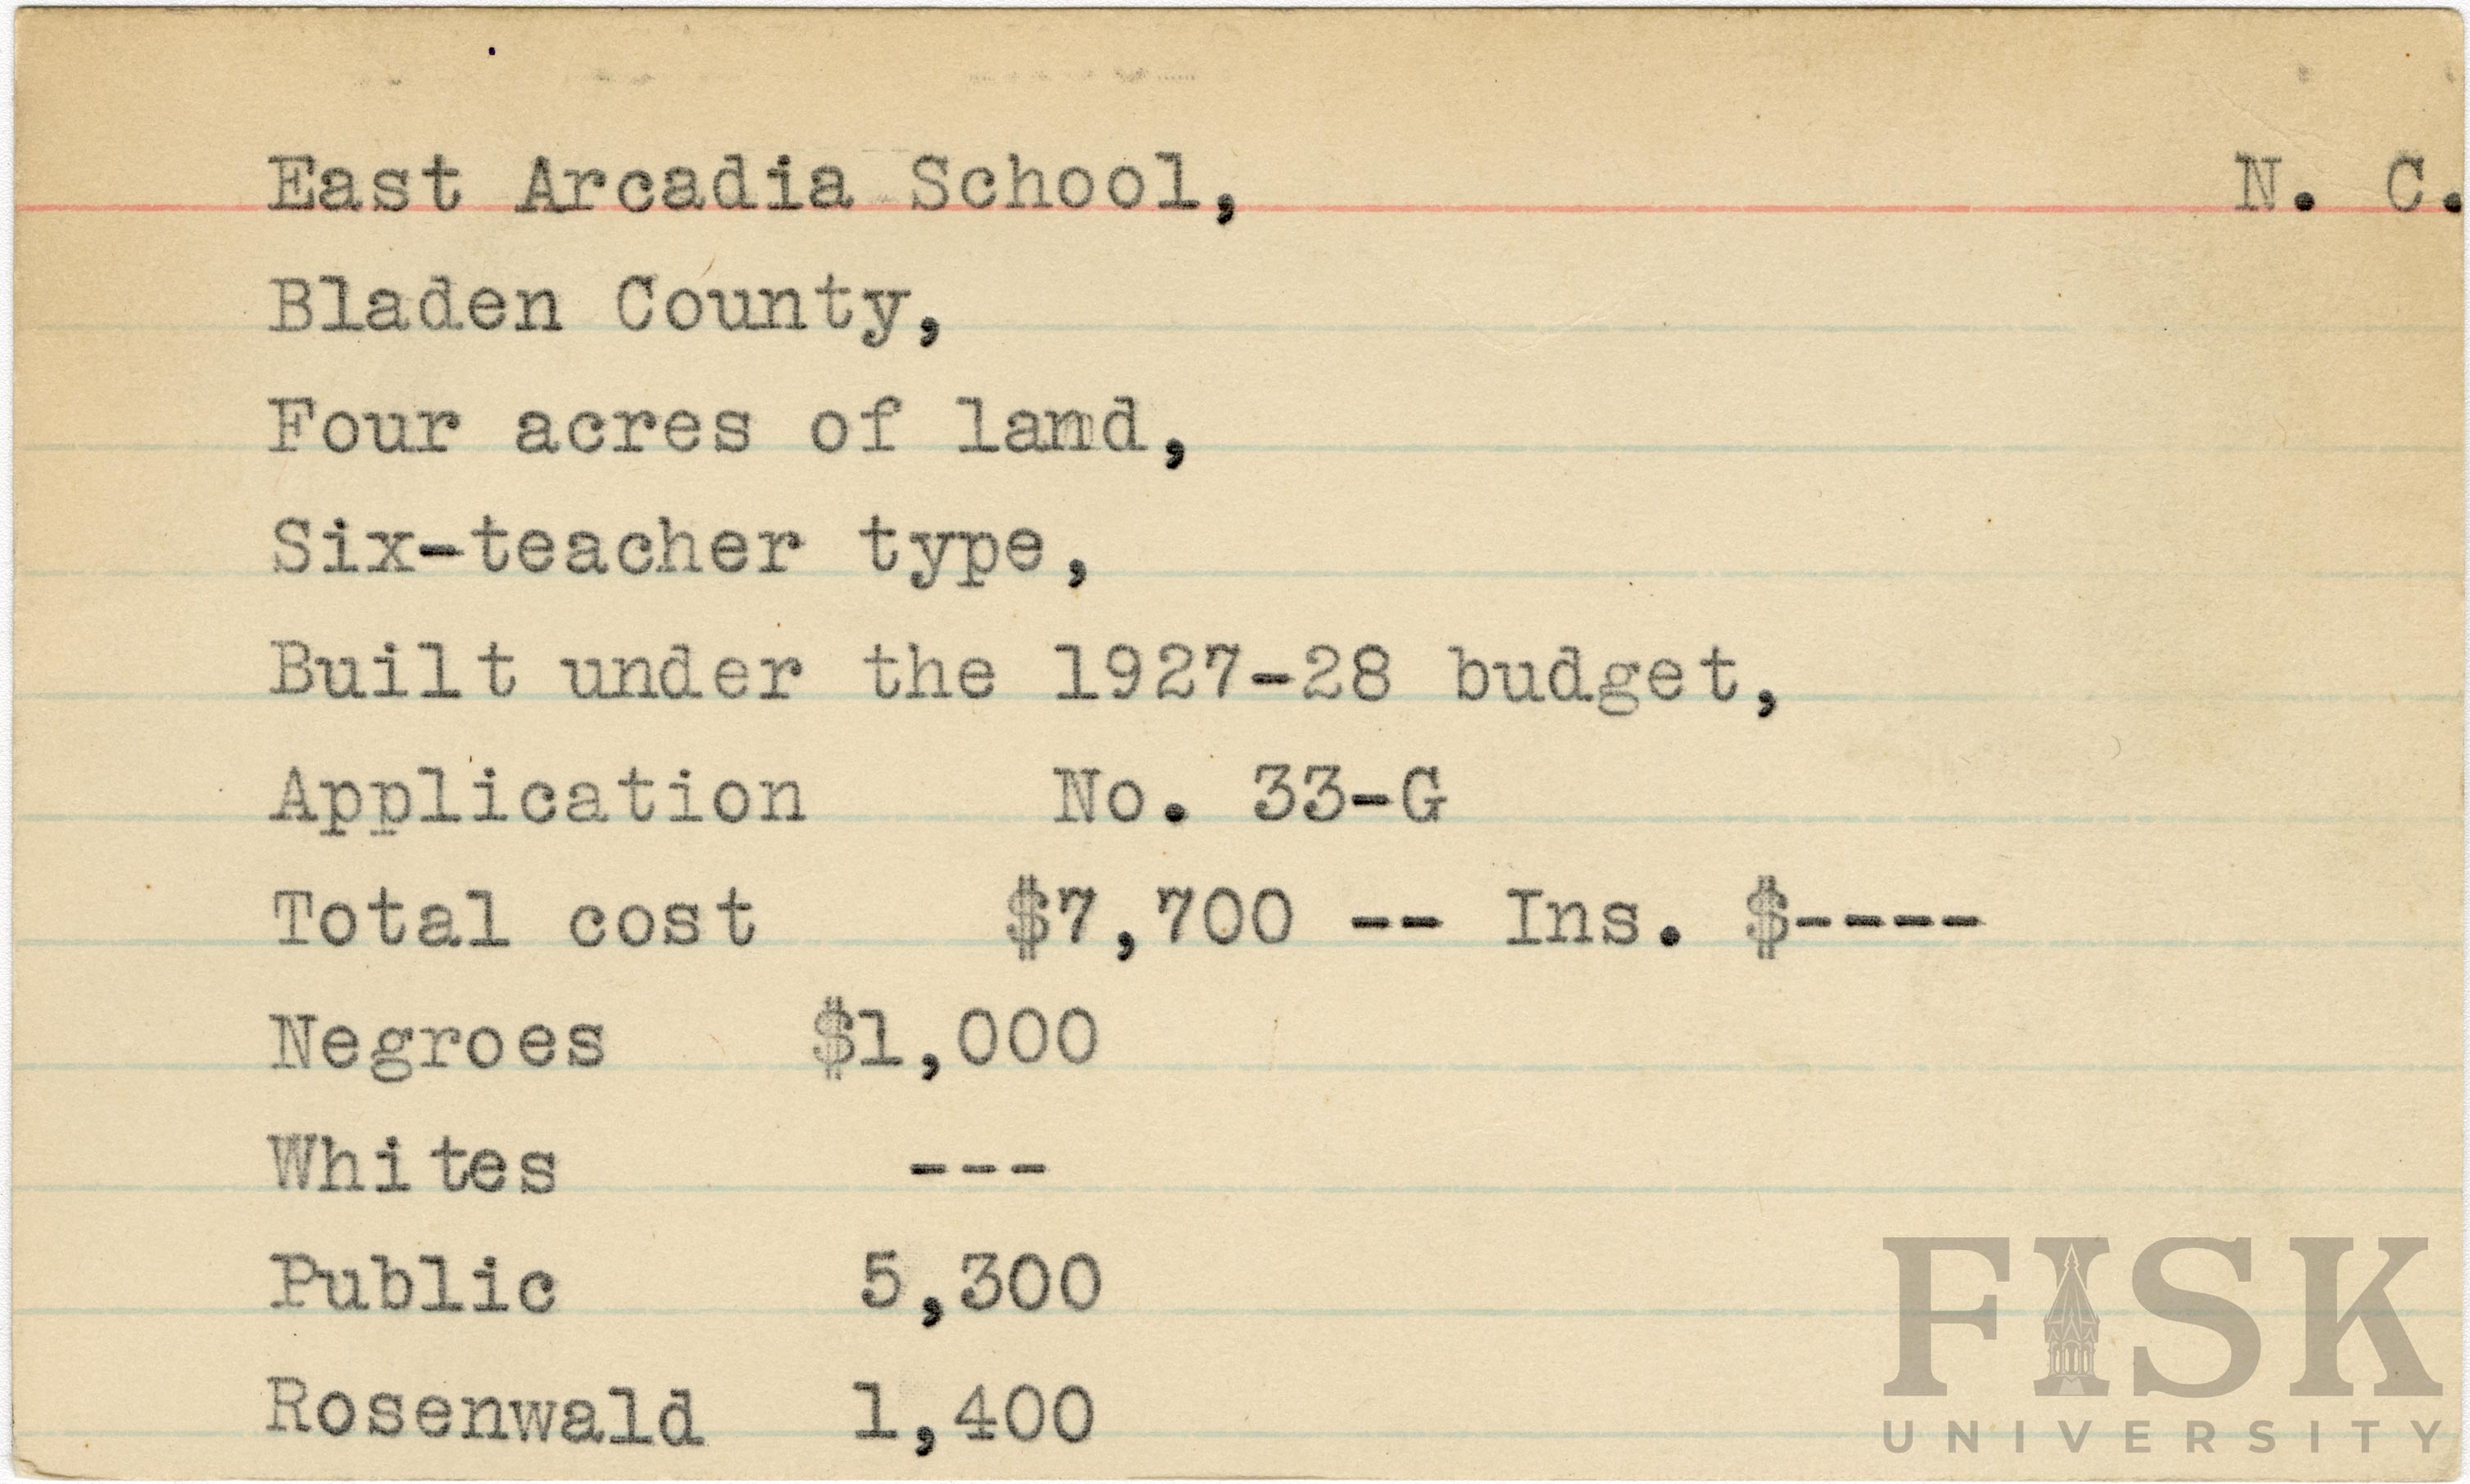 East Arcadia School, N. C.
Bladen County,
Four acres of land,
Six-teacher type,
Built under the 1927-28 budget,
Application No. 33-G
Total cost $7,700 -- Ins. $----
Negroes $1,000
Whites ---
Public 5,300
Rosenwald 1,400
FISK
UNIVERSITY